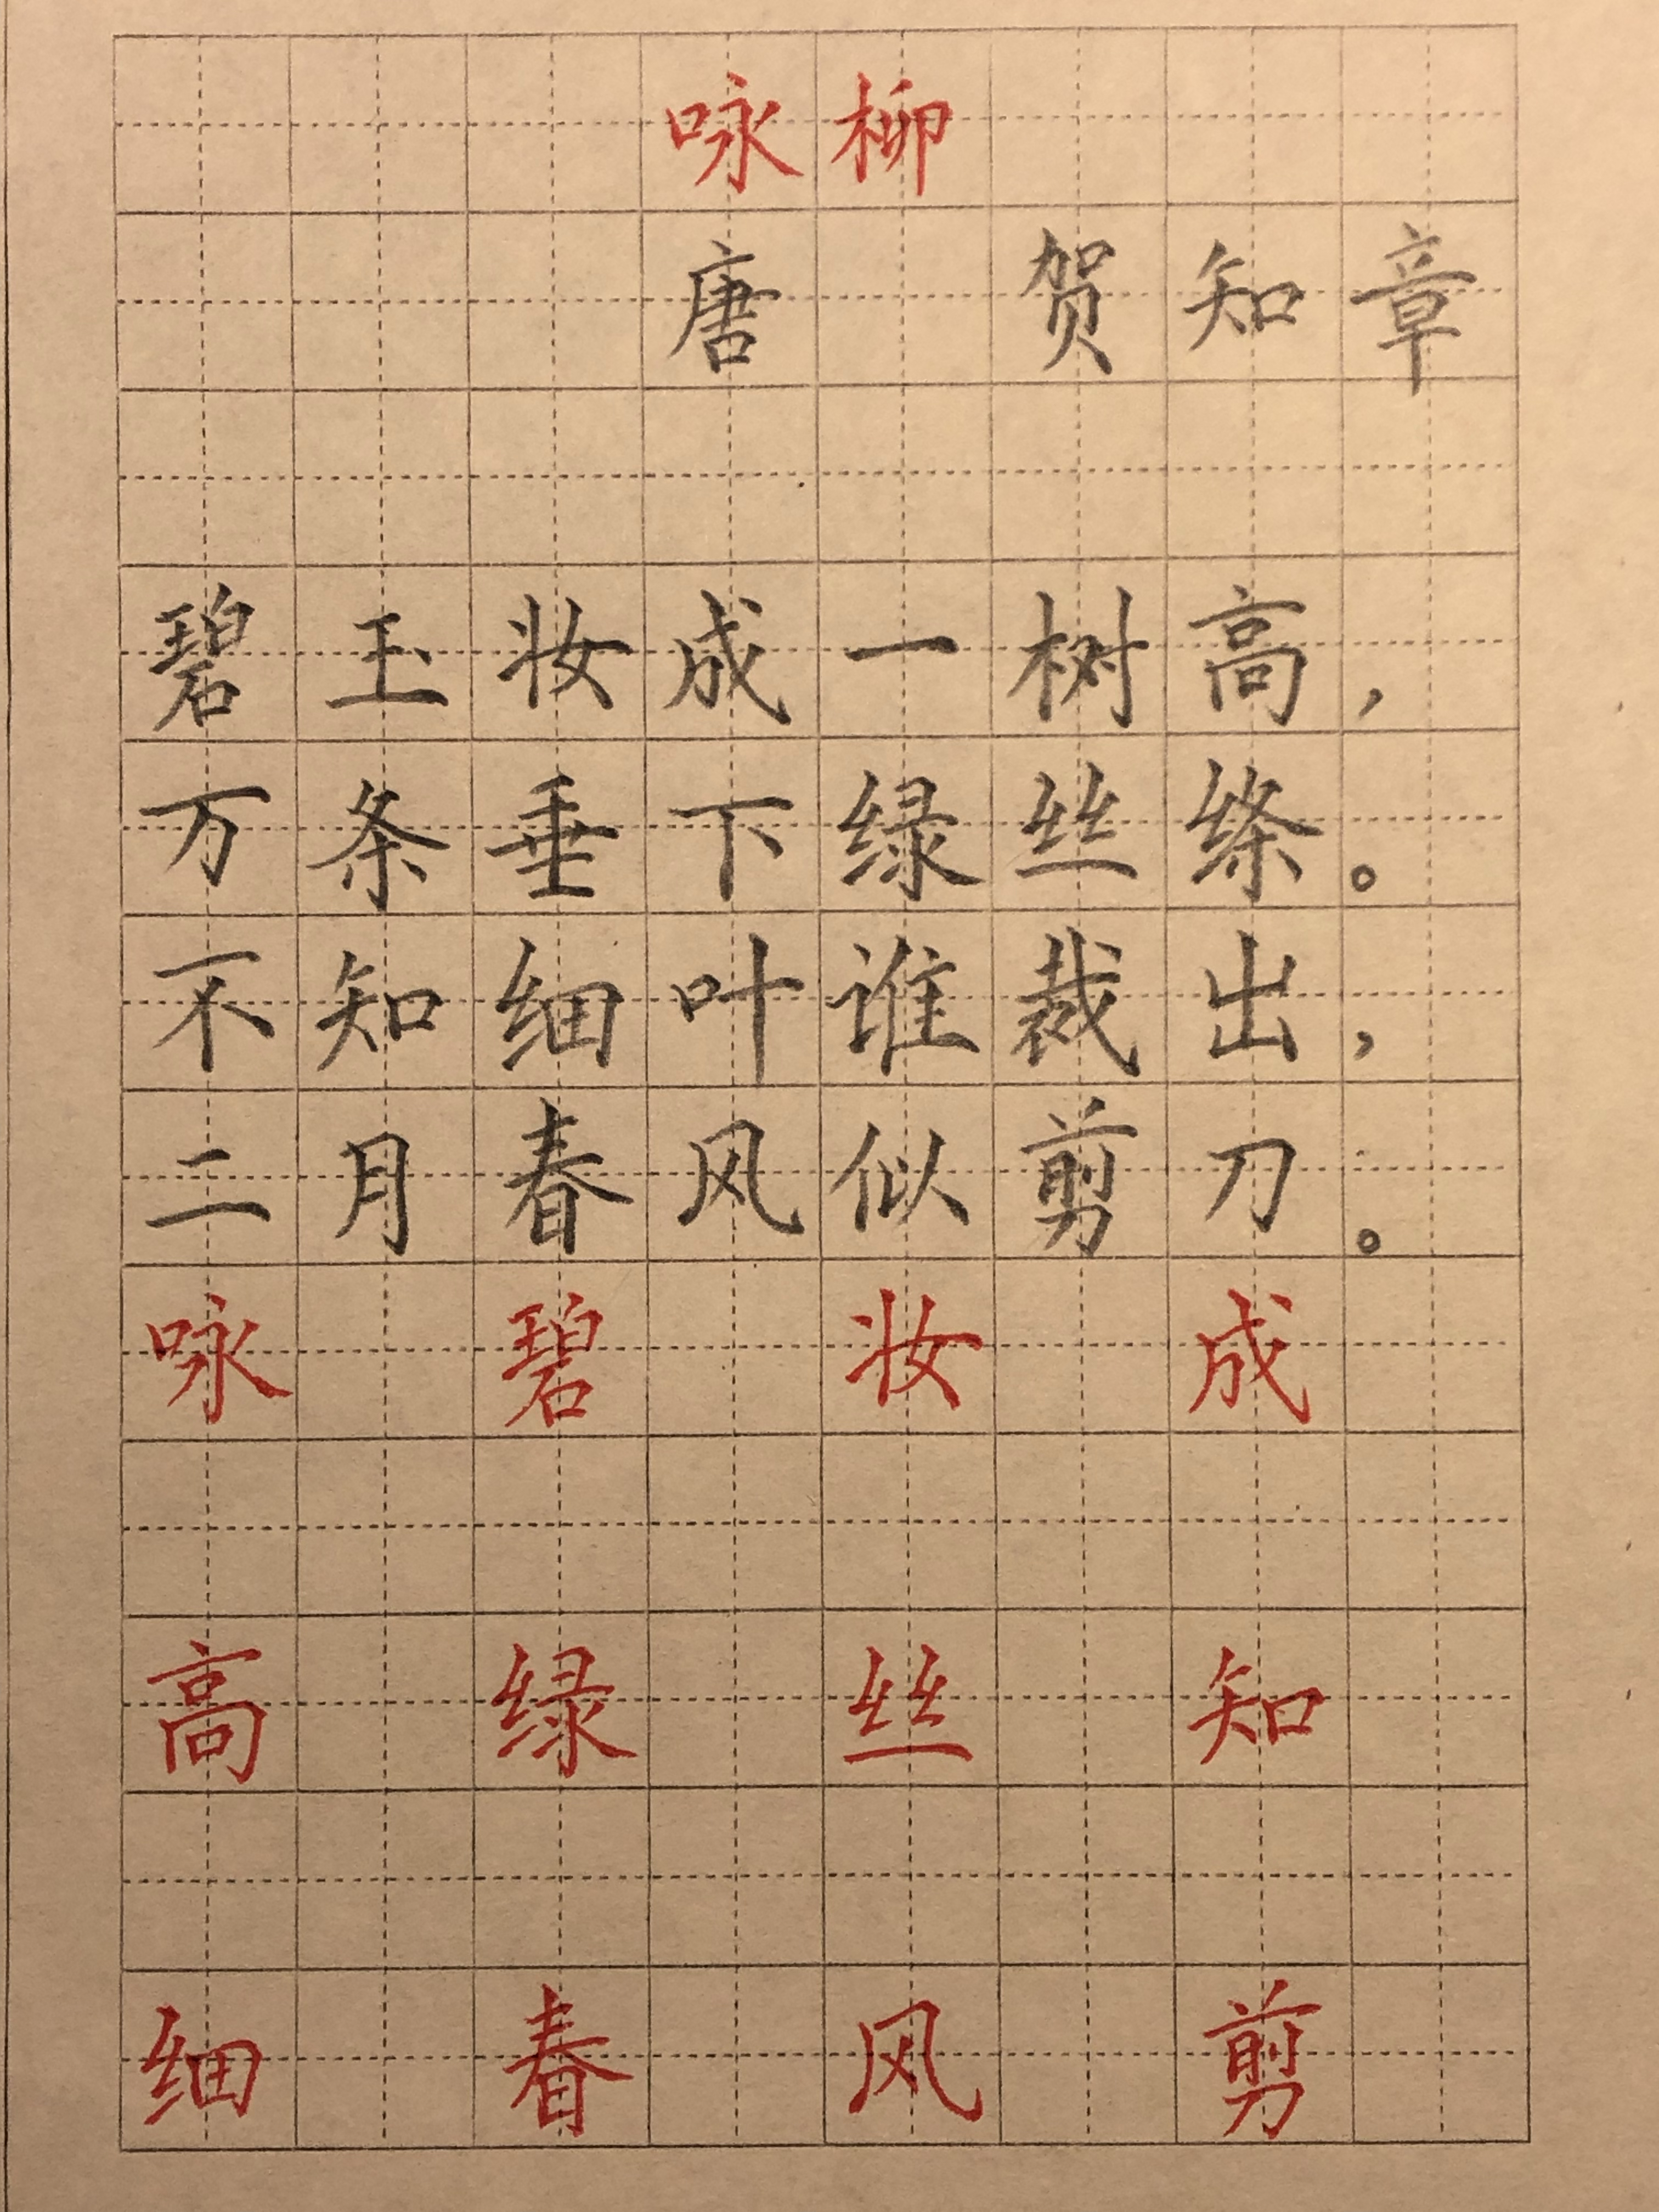 咏柳
唐 贺知章
碧玉妆成一树高，
万条垂下绿丝绦。
不知细叶谁裁出，
二月春风似剪刀。
咏 碧 妆 成
高 绿 丝 知
细 春 风 剪